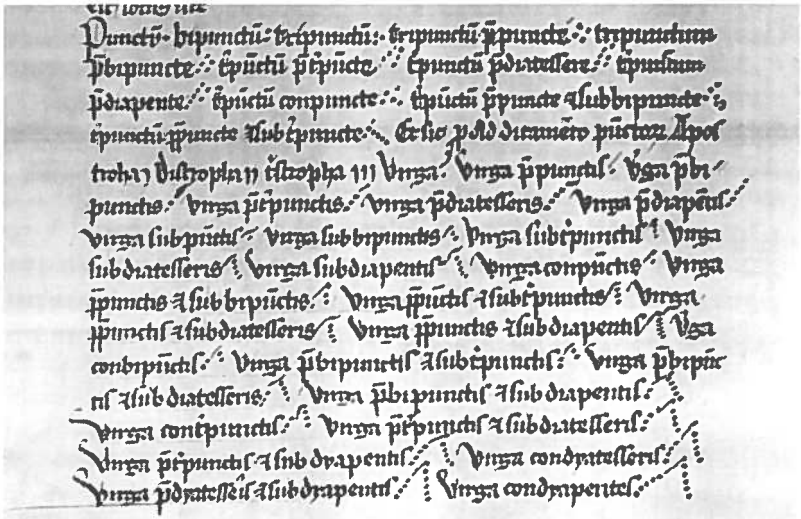 Punctū· bipunctū: tripunctū: tripunctū p̄puncte tripunctum
p̄bipuncte t̓punctū p̄t̓pūcte t̓punctū p̄diatessere t̓punctum
p̄diapente t̓pūctū conpuncte t̓pūctū p̄puncte ⁊ subbipuncte
t̓punctū p̄puncte ⁊ subt̓puncte Et sic
tropha ı distropha ıı t̓stropha ııı Virga p̄punctis Vga p̄bi
punctis Virga p̄t̓punctis Virga p̄diatesseris Virga p̄diapētis
Virga subpūctis Virga subbipunctis Virga subt̓punctis Virga
subdiatesseris Virga subdiapentis Virga conpūctis Virga
p̄punctis ⁊ subbipūctis Virga p̄pūctis ⁊ subt̓punctis Virga
p̄punctis ⁊ subdiatesseris Virga p̄punctis ⁊ subdiapentis Vga
conbipūctis Virga p̄bipunctis ⁊ subt̓punctis Virga p̄bipūc
tis ⁊ subdiatesseris Virga p̄bipunctis ⁊ subdiapentis
Virga cont̓punctis Virga p̄t̓punctis ⁊ subdiatesseris
Virga p̄t̓punctis ⁊ subdyapentis Virga condyatesseris
Virga p̄dyatesseis ⁊ subdyapentis Virga condyapentes